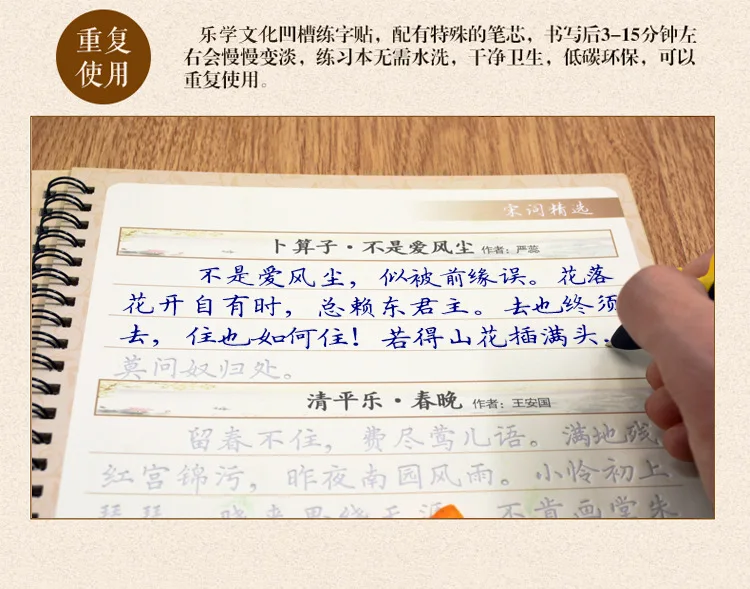 重复
使用
乐学文化凹槽练字贴，配有特殊的笔芯，书写后3-15分钟左
右会慢慢变淡，练习本无需水洗，干净卫生，低碳环保，可以
重复使用。
宋词精选
卜算子·不是爱风尘 作者：严蕊
不是爱风尘，似被前缘误。花落
花开自有时，总赖东君主。去也终须
去，住也如何住！若得山花插满头，
莫问奴归处。
清平乐·春晚 作者：王安国
留春不住，费尽莺儿语。满地残
红宫锦污，昨夜南园风雨。小怜初上
琵琶，晓来思绕天涯。不肯画堂朱